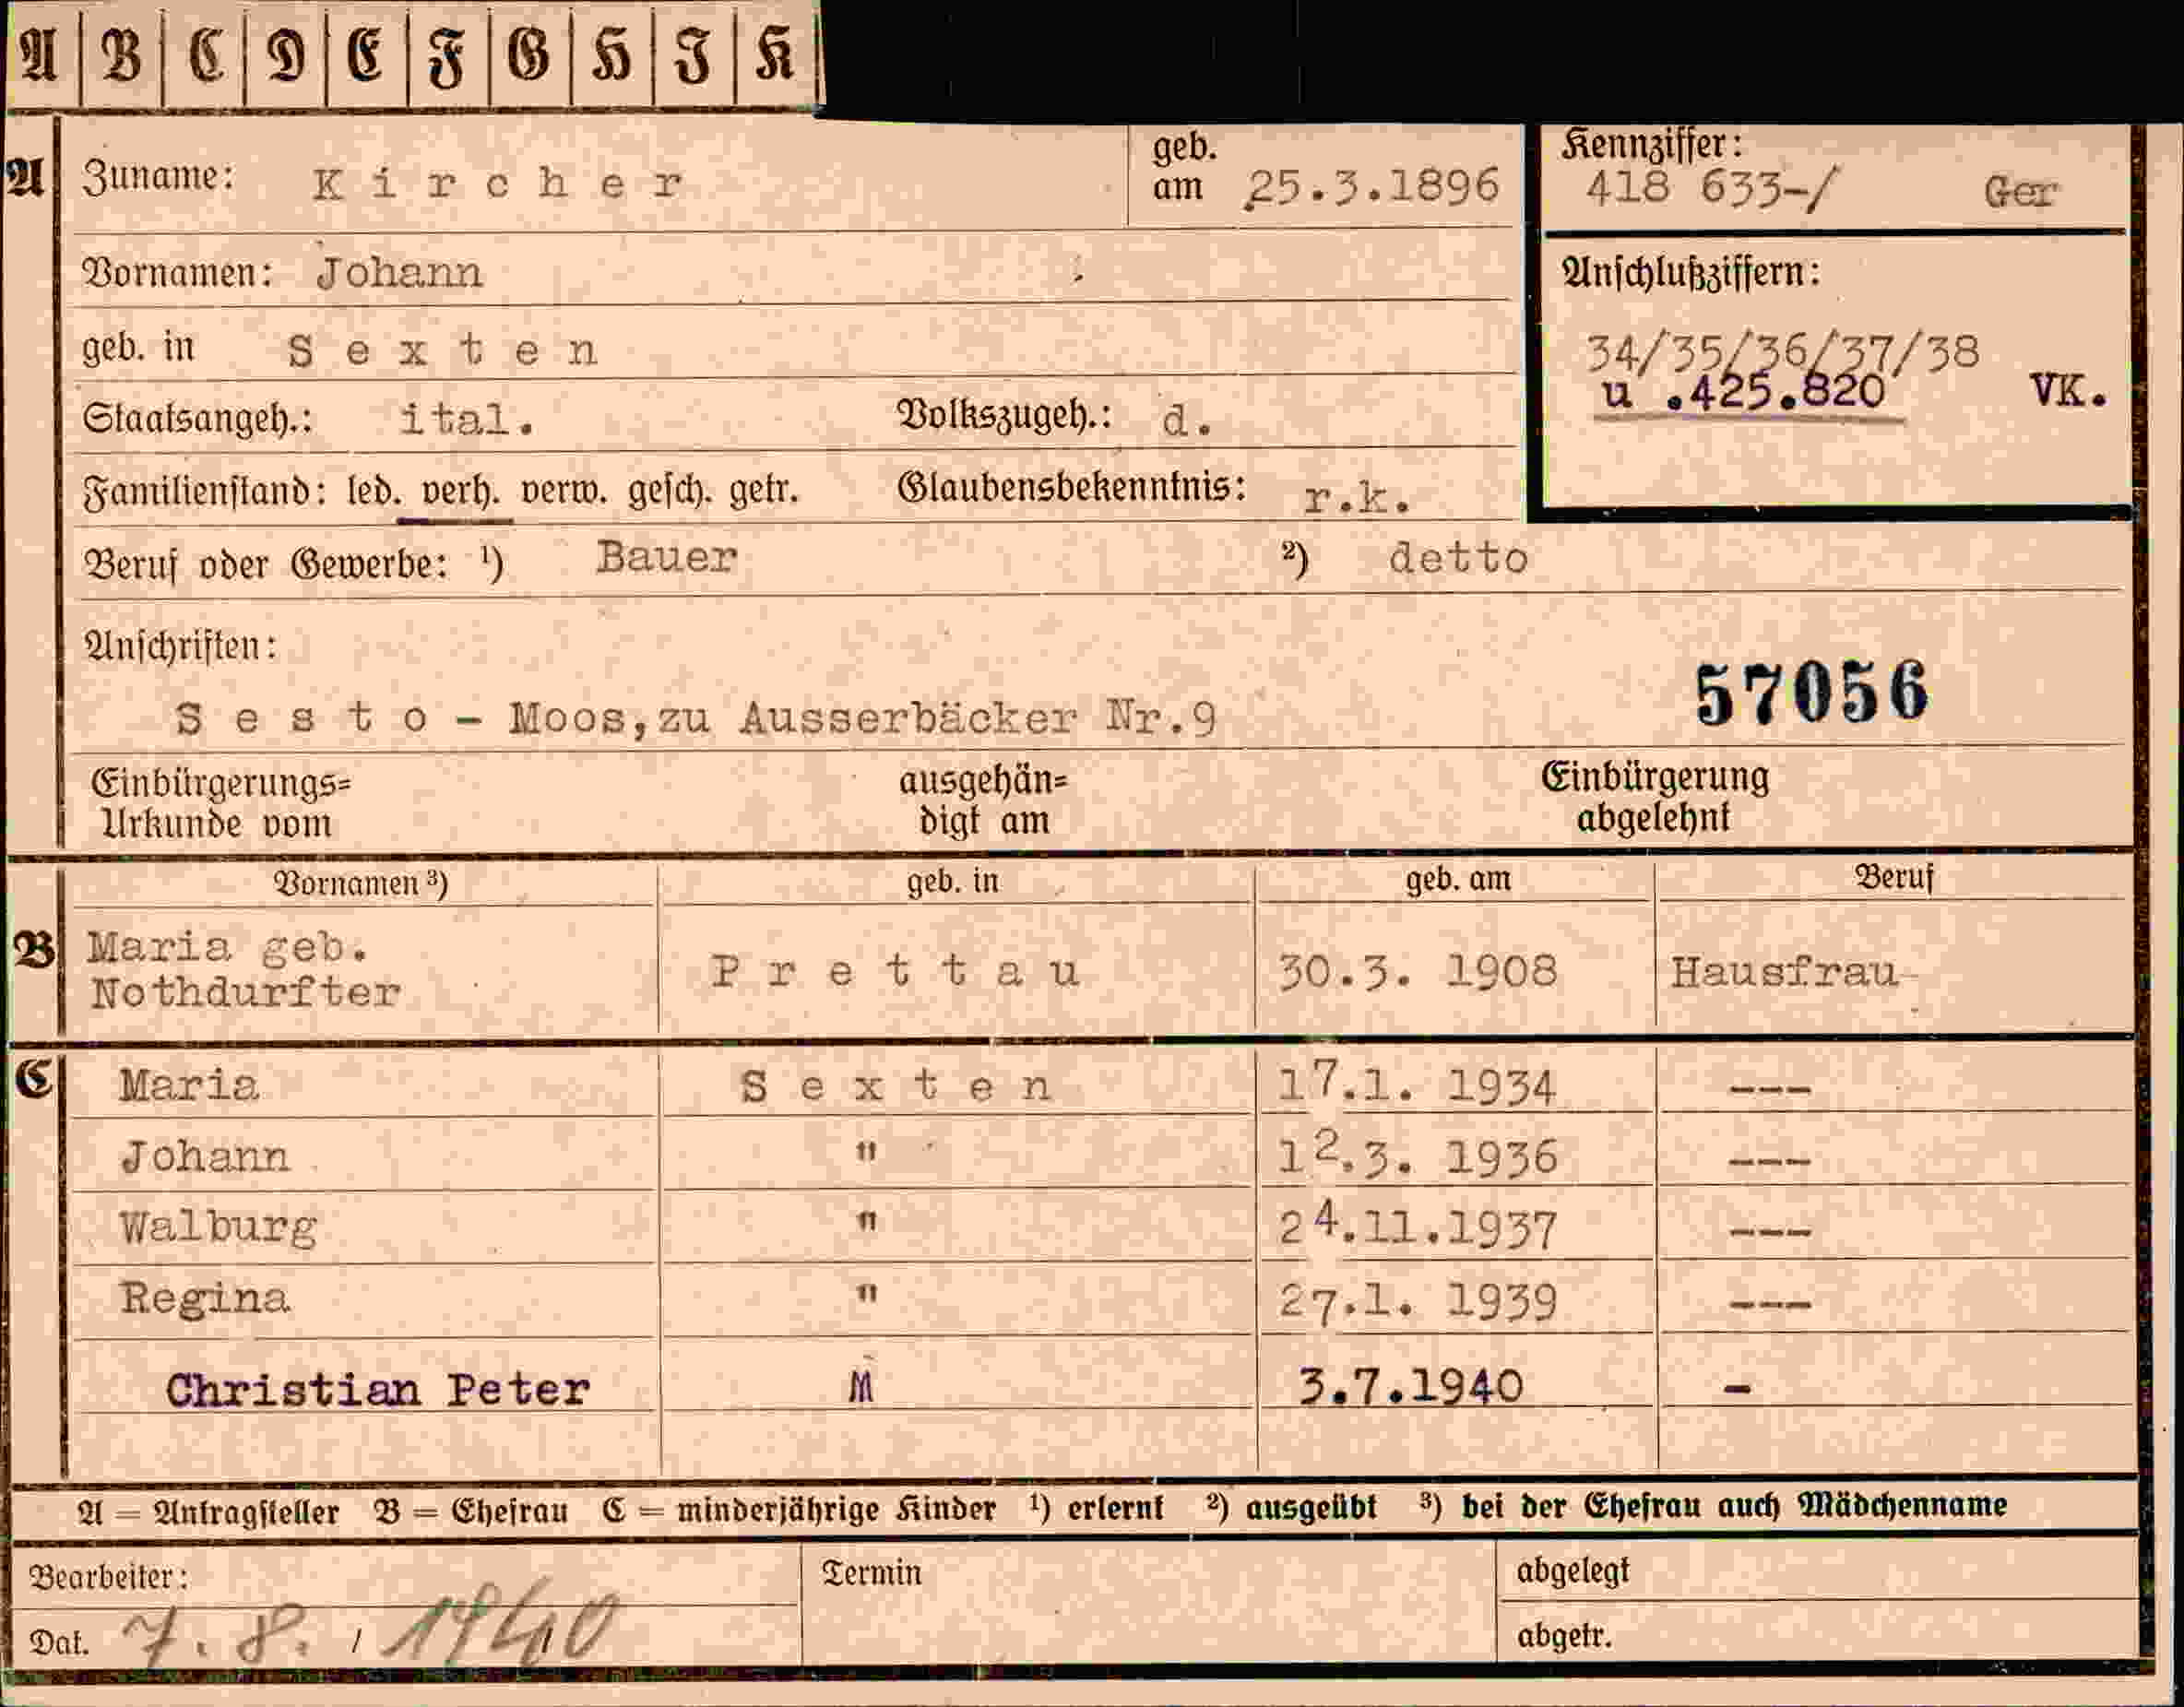 A B C D E F G H I K
A Zuname: Kircher geb. am 25.3.1896 Kennziffer: 418 633-/ Ger
Vornamen: Johann Anschlußziffern:
geb. in Sexten 34/35/36/37/38
u .425.820 VK.
Staatsangeh.: ital. Volkszugeh.: d.
Familienstand: led. verh. verw. gesch. getr. Glaubensbekenntnis: r.k.
Beruf oder Gewerbe: ¹) Bauer ²) detto
Anschriften:
57056
Sesto - Moos,zu Ausserbäcker Nr.9
Einbürgerungs= ausgehän= Einbürgerung
Urkunde vom digt am abgelehnt
Vornamen ³) geb. in geb. am Beruf
B Maria geb.
Nothdurfter Prettau 30.3. 1908 Hausfrau
C Maria Sexten 17.1. 1934 ---
Johann " 12.3. 1936 ---
Walburg " 24.11.1937 ---
Regina " 27.1. 1939 ---
Christian Peter " 3.7.1940 -
A = Antragsteller B = Ehefrau C = minderjährige Kinder ¹) erlernt ²) ausgeübt ³) bei der Ehefrau auch Mädchenname
Bearbeiter: Termin abgelegt
Dat. 7. 8. / 1940 abgetr.